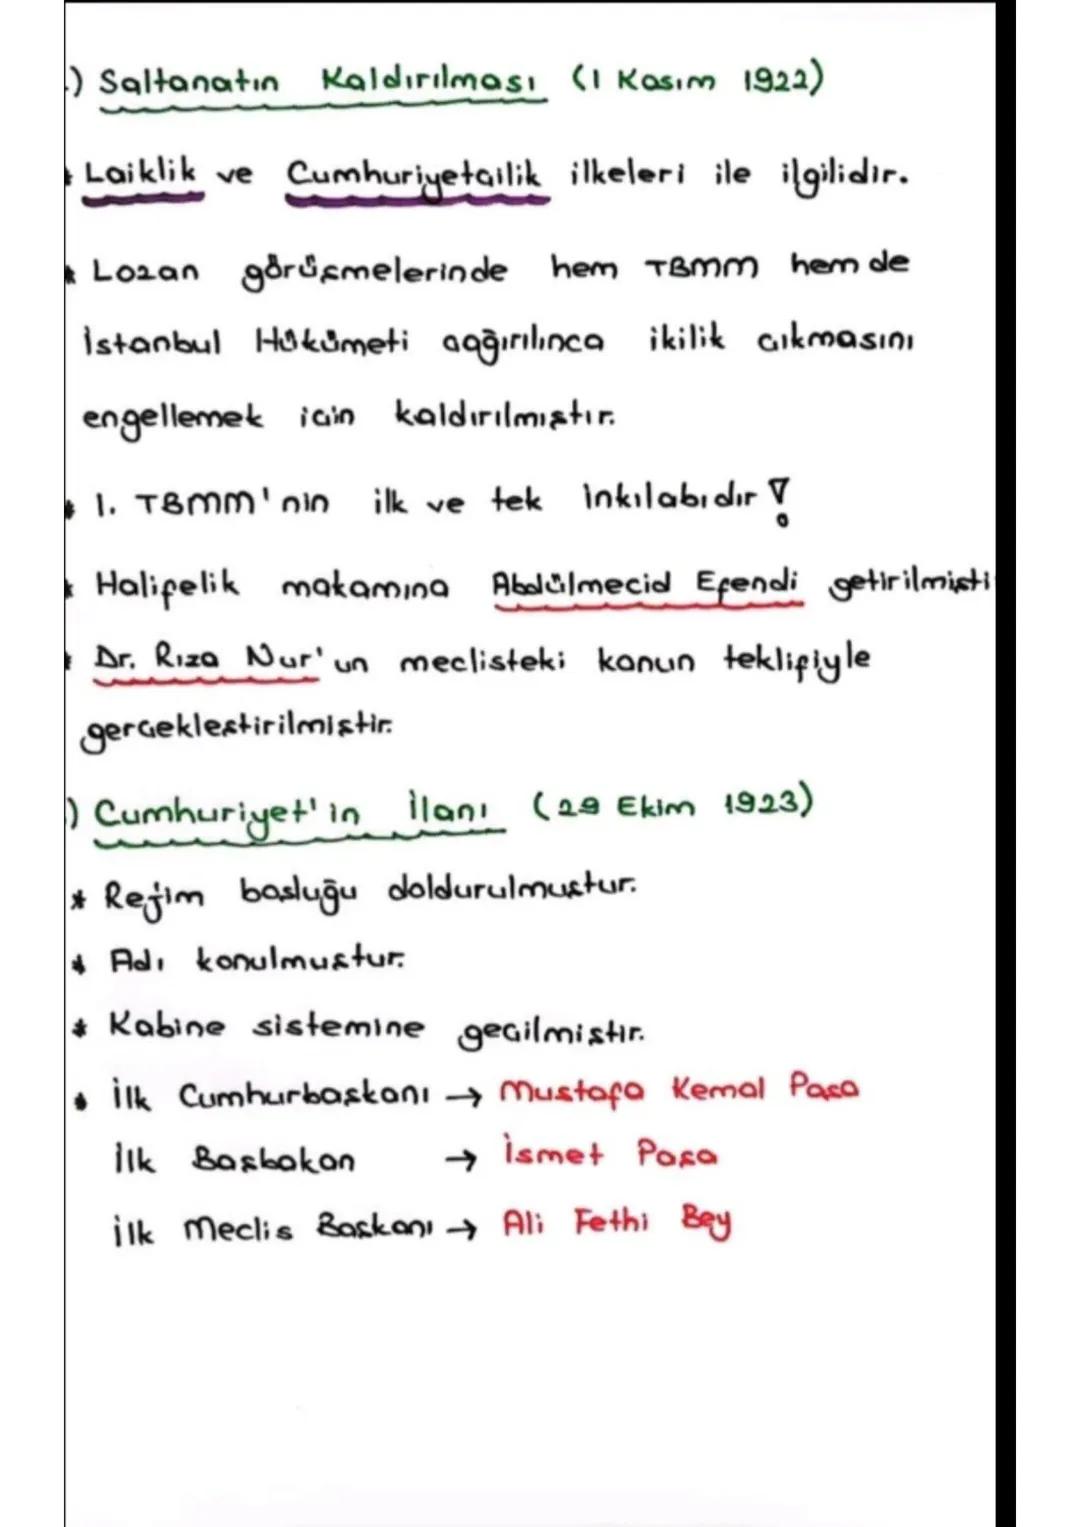 ) Saltanatın Kaldırılması (1 Kasım 1922)
* Laiklik ve Cumhuriyetçilik ilkeleri ile ilgilidir.
* Lozan görüşmelerinde hem TBMM hem de
İstanbul Hükümeti çağırılınca ikilik çıkmasını
engellemek için kaldırılmıştır.
* 1. TBMM'nin ilk ve tek inkılabıdır !
* Halifelik makamına Abdülmecid Efendi getirilmişti
* Dr. Rıza Nur'un meclisteki kanun teklifiyle
gerçekleştirilmiştir.
) Cumhuriyet'in İlanı (29 Ekim 1923)
* Rejim boşluğu doldurulmuştur.
* Adı konulmuştur.
* Kabine sistemine geçilmiştir.
* İlk Cumhurbaşkanı → Mustafa Kemal Paşa
İlk Başbakan → İsmet Paşa
İlk Meclis Başkanı → Ali Fethi Bey